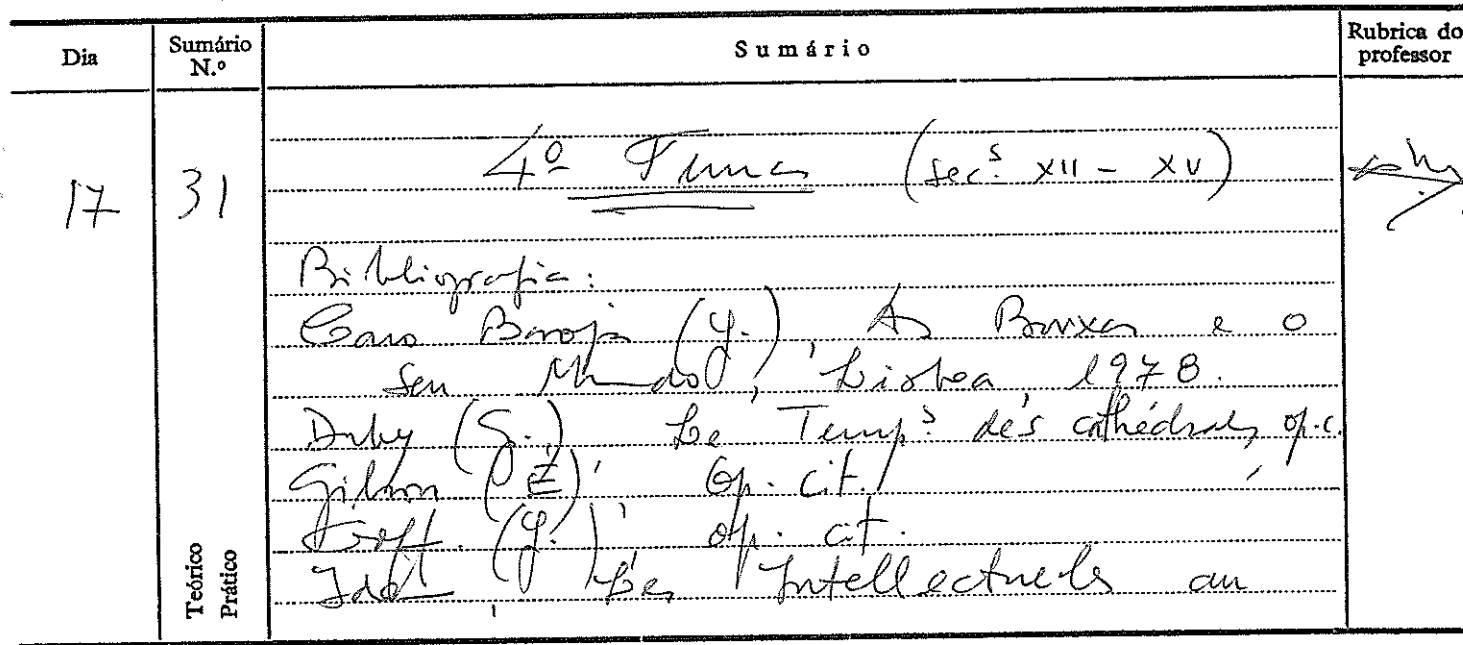 Dia
Sumário N.º
Sumário
Rubrica do professor
17
31
4º Tema (sec.s XII - XV)
Bibliografia:
Caro Baroja (J.), As Bruxas e o
seu Mundo, Lisboa, 1978.
Duby (G.), Le Temps des cathédrales, op.c.
Gilson (É), Op. cit.
(J.), op. cit.
Les Intellectuels au
Teórico
Prático